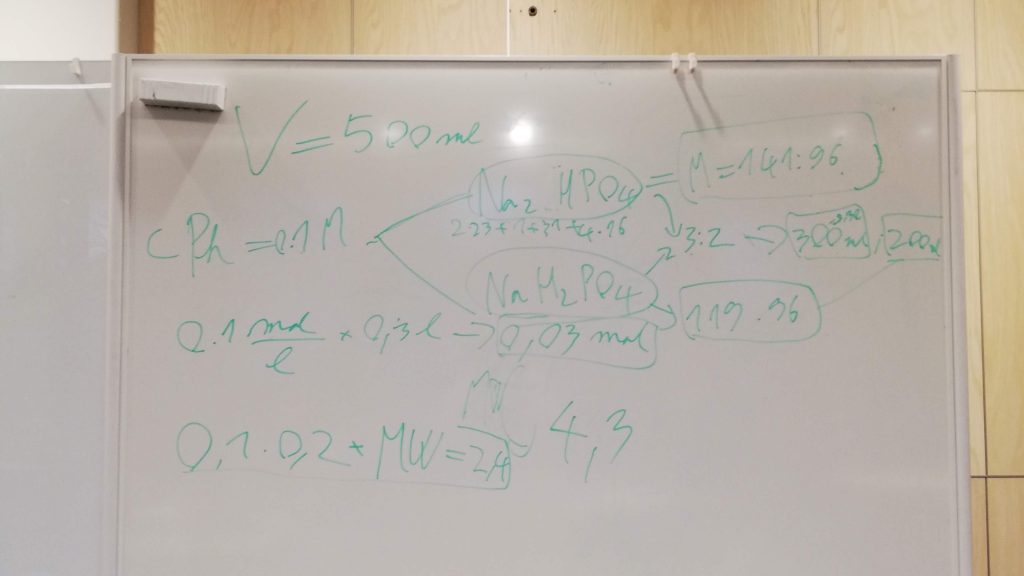 V = 500 ml
Na₂HPO₄ = M = 141.96
2·23+1+31+4·16
c Ph = 0.1 M
3:2 → 300 ml, 200 ml
NaH₂PO₄
119.96
0.1 mol/l * 0,3 l → 0,03 mol
MW
0,1·0,2 * MW = 2,4
4,3